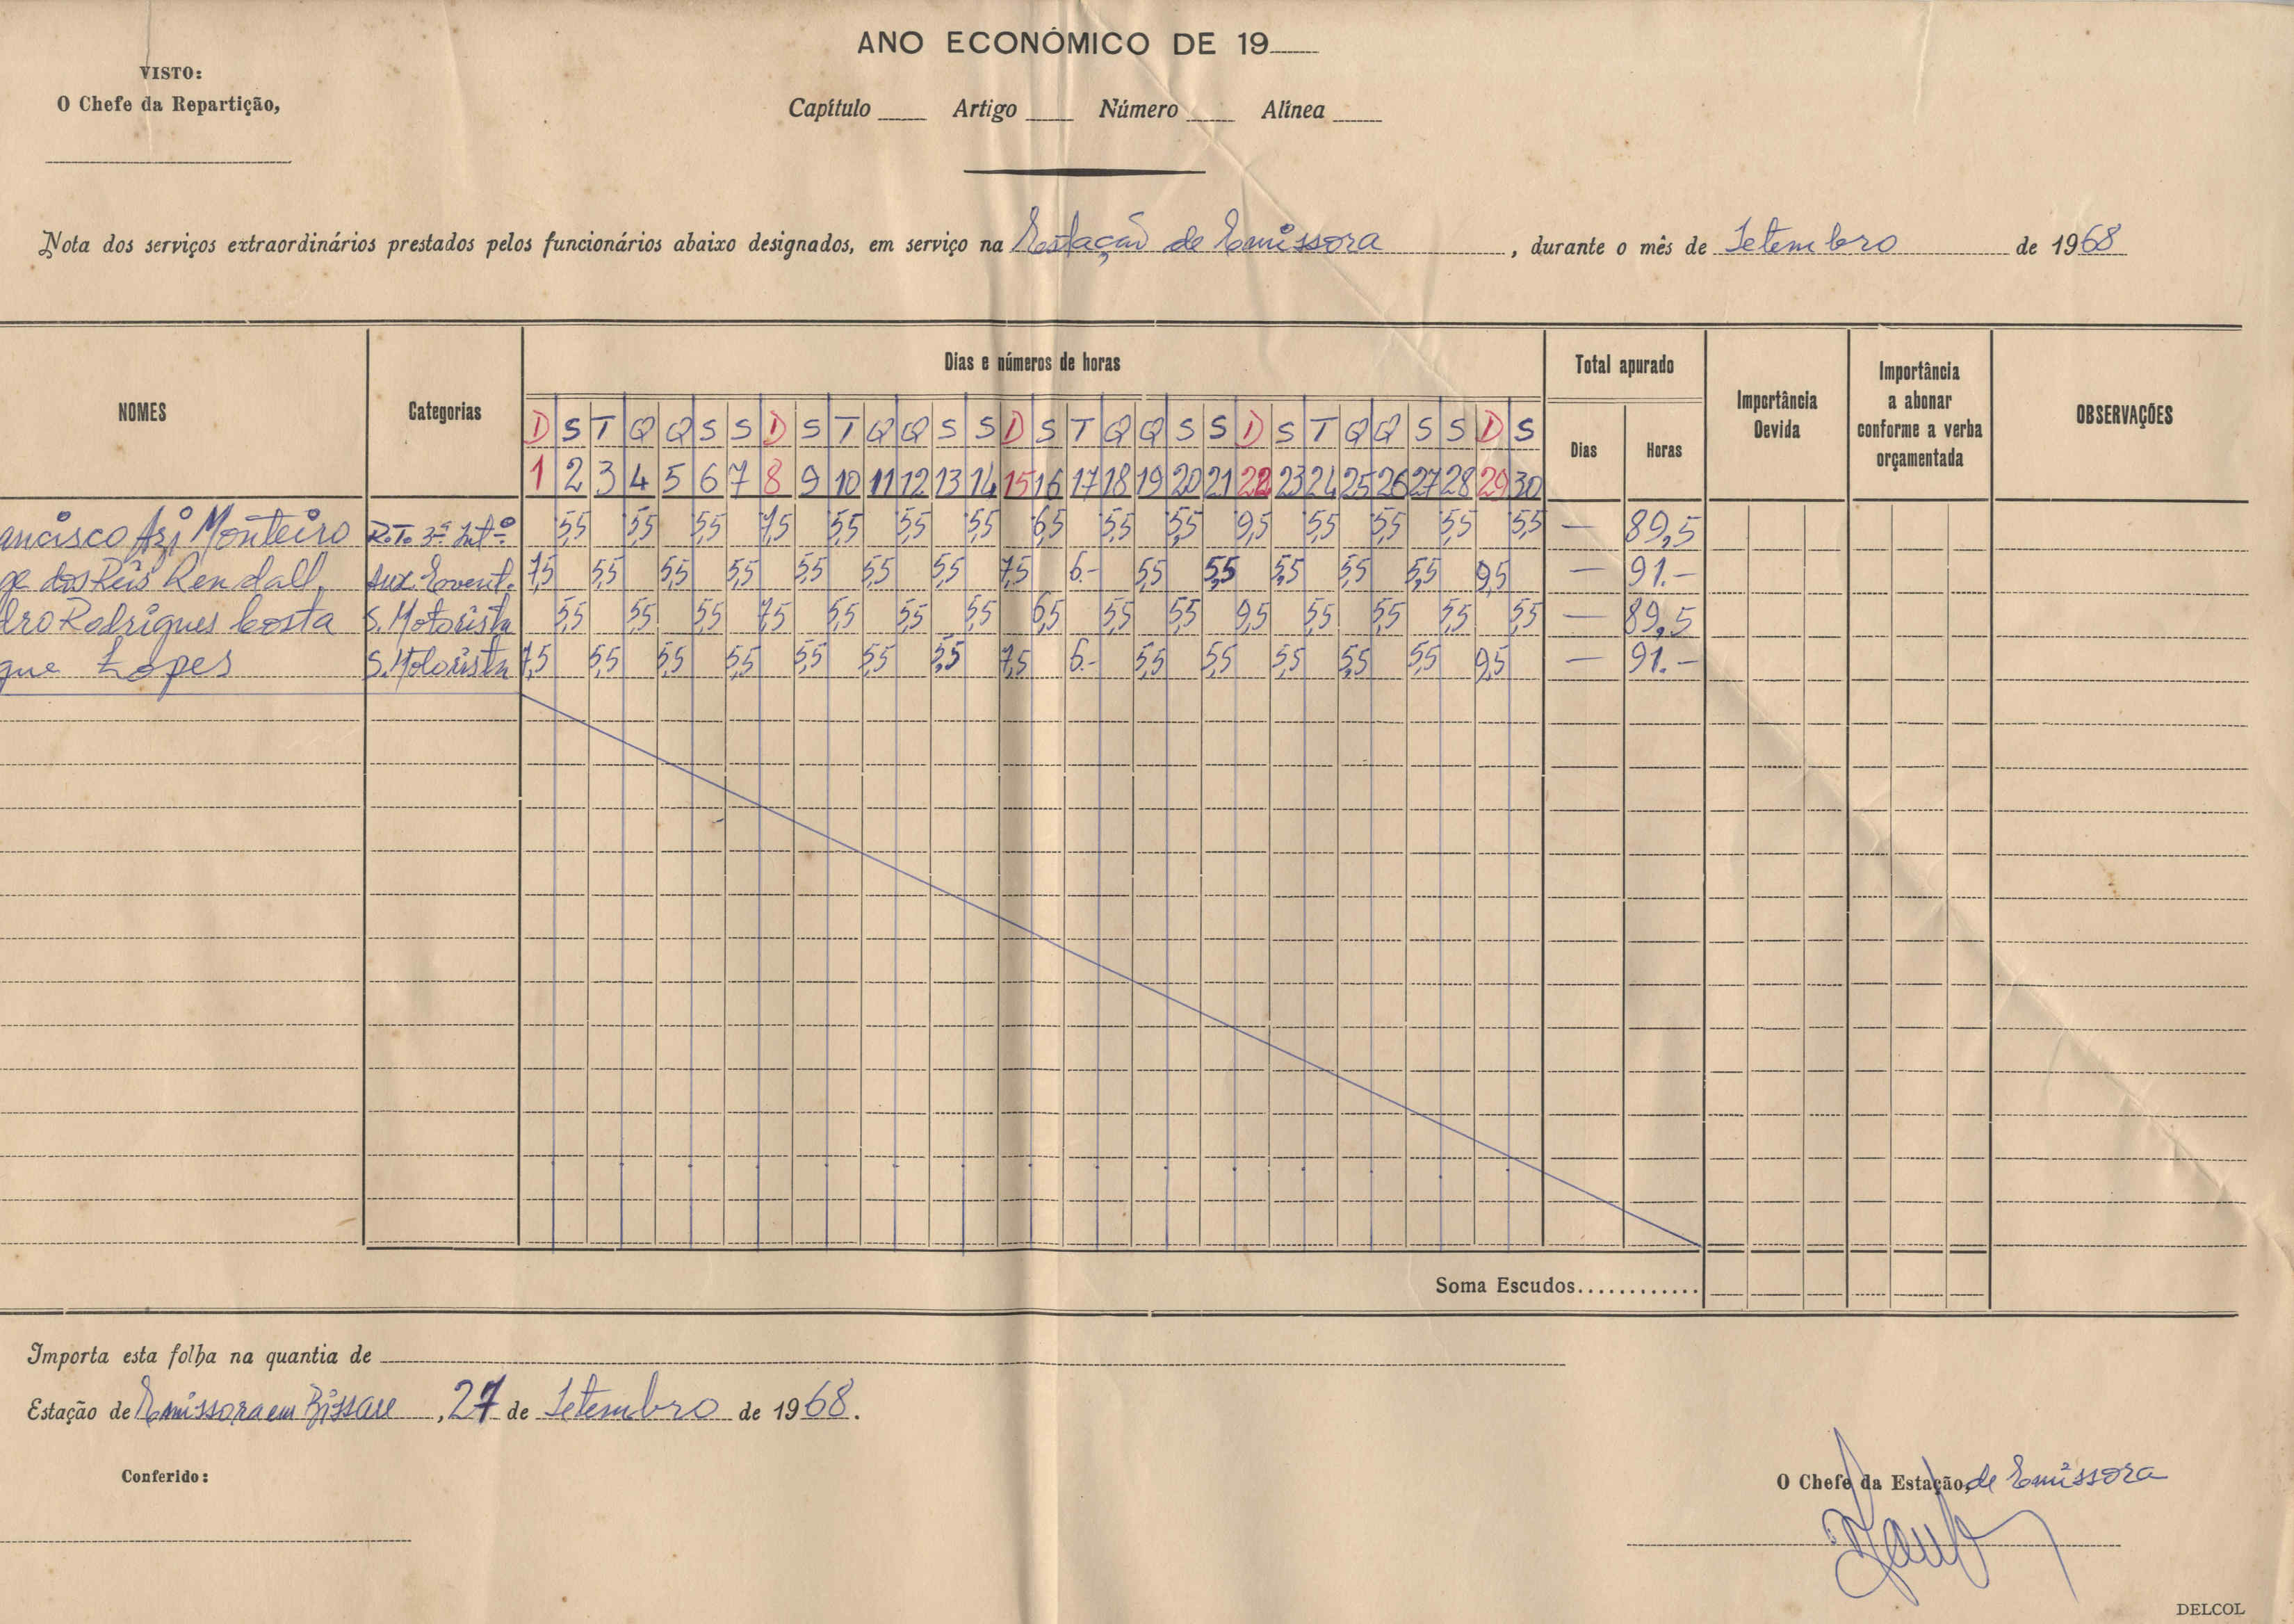 ANO ECONÓMICO DE 19
VISTO:
O Chefe da Repartição,
Capítulo Artigo Número Alínea
Nota dos serviços extraordinários prestados pelos funcionários abaixo designados, em serviço na Estação de Emissora, durante o mês de Setembro de 1968
NOMES Categorias Dias e números de horas Total apurado Importância Devida Importância a abonar conforme a verba orçamentada OBSERVAÇÕES
Dias Horas
D S T Q Q S S D S T Q Q S S D S T Q Q S S D S T Q Q S S D S
1 2 3 4 5 6 7 8 9 10 11 12 13 14 15 16 17 18 19 20 21 22 23 24 25 26 27 28 29 30
ancisco Azi Monteiro R.T. 3ª Intº 5,5 5,5 5,5 7,5 5,5 5,5 5,5 6,5 5,5 5,5 9,5 5,5 5,5 5,5 5,5 — 89,5
ge dos Reis Rendall Aux. Event. 7,5 5,5 5,5 5,5 5,5 5,5 5,5 7,5 6.- 5,5 5,5 5,5 5,5 5,5 9,5 — 91.-
dro Rodrigues Costa S. Motorista 5,5 5,5 5,5 7,5 5,5 5,5 5,5 6,5 5,5 5,5 9,5 5,5 5,5 5,5 5,5 — 89,5
que Lopes S. Motorista 7,5 5,5 5,5 5,5 5,5 5,5 5,5 7,5 6.- 5,5 5,5 5,5 5,5 5,5 9,5 — 91.-
Soma Escudos............
Importa esta folha na quantia de
Estação de Emissora em Bissau, 27 de Setembro de 1968.
Conferido:
O Chefe da Estação, de Emissora
DELCOL